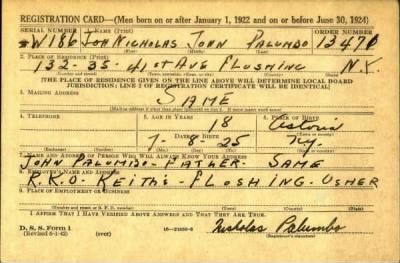 REGISTRATION CARD—(Men born on or after January 1, 1922 and on or before June 30, 1924)
SERIAL NUMBER 1. NAME (Print) ORDER NUMBER
W186 JOHN NICHOLAS JOHN PALUMBO 13470
2. PLACE OF RESIDENCE (Print)
132-35-41st AVE FLUSHING N.Y.
(Number and street) (Town, township, village, or city) (County) (State)
[THE PLACE OF RESIDENCE GIVEN ON THE LINE ABOVE WILL DETERMINE LOCAL BOARD
JURISDICTION; LINE 2 OF REGISTRATION CERTIFICATE WILL BE IDENTICAL]
3. MAILING ADDRESS
SAME
[Mailing address if other than place indicated on line 2. If same insert word same]
4. TELEPHONE 5. AGE IN YEARS 6. PLACE OF BIRTH
18 Astoria
DATE OF BIRTH
7-8-25 NY.
7. NAME AND ADDRESS OF PERSON WHO WILL ALWAYS KNOW YOUR ADDRESS
JOHN PALUMBO-FATHER-SAME
8. EMPLOYER'S NAME AND ADDRESS
R.K.O-KEITH'S-FLUSHING-USHER
9. PLACE OF EMPLOYMENT OR BUSINESS
(Number and street or R. F. D. number) (Town) (County) (State)
I AFFIRM THAT I HAVE VERIFIED ABOVE ANSWERS AND THAT THEY ARE TRUE.
D. S. S. Form 1
(over)
Nicholas Palumbo
(Registrant's signature)